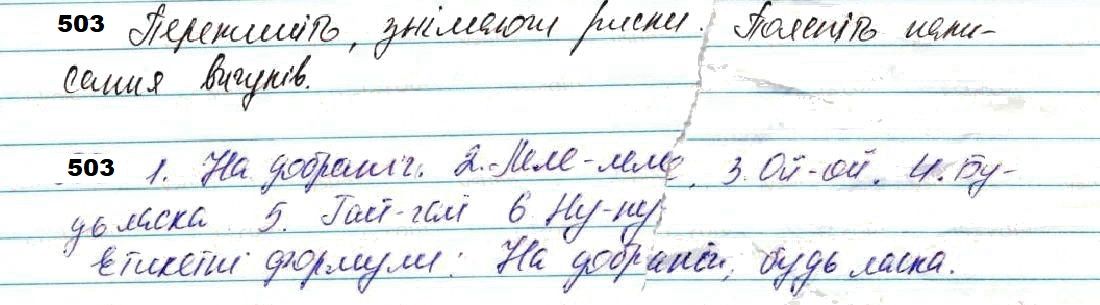 503 Перепишіть, знімаючи риски. Поясніть напи-
сання вигуків.
503 1. На добраніч. 2. Леле-леле. 3. Ой-ой. 4. Бу-
дь ласка 5. Гай-гай 6 Ну-ну
Етикетні формули: На добраніч, будь ласка.